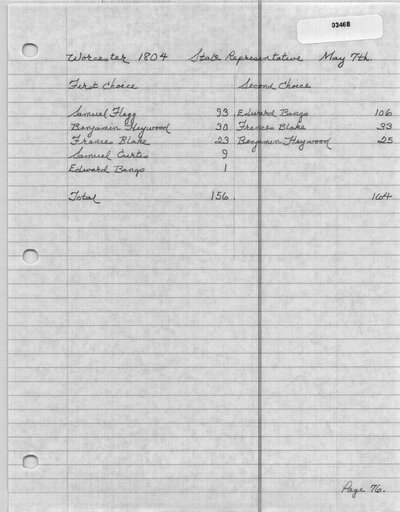 03468
Worcester 1804 State Representative May 7th.
First Choice Second Choice
Samuel Flagg 93 Edward Bangs 106
Benjamin Heywood 30 Frances Blake 33
Frances Blake 23 Benjamin Heywood 25
Samuel Curtis 9
Edward Bangs 1
Total 156. 164
Page 76.